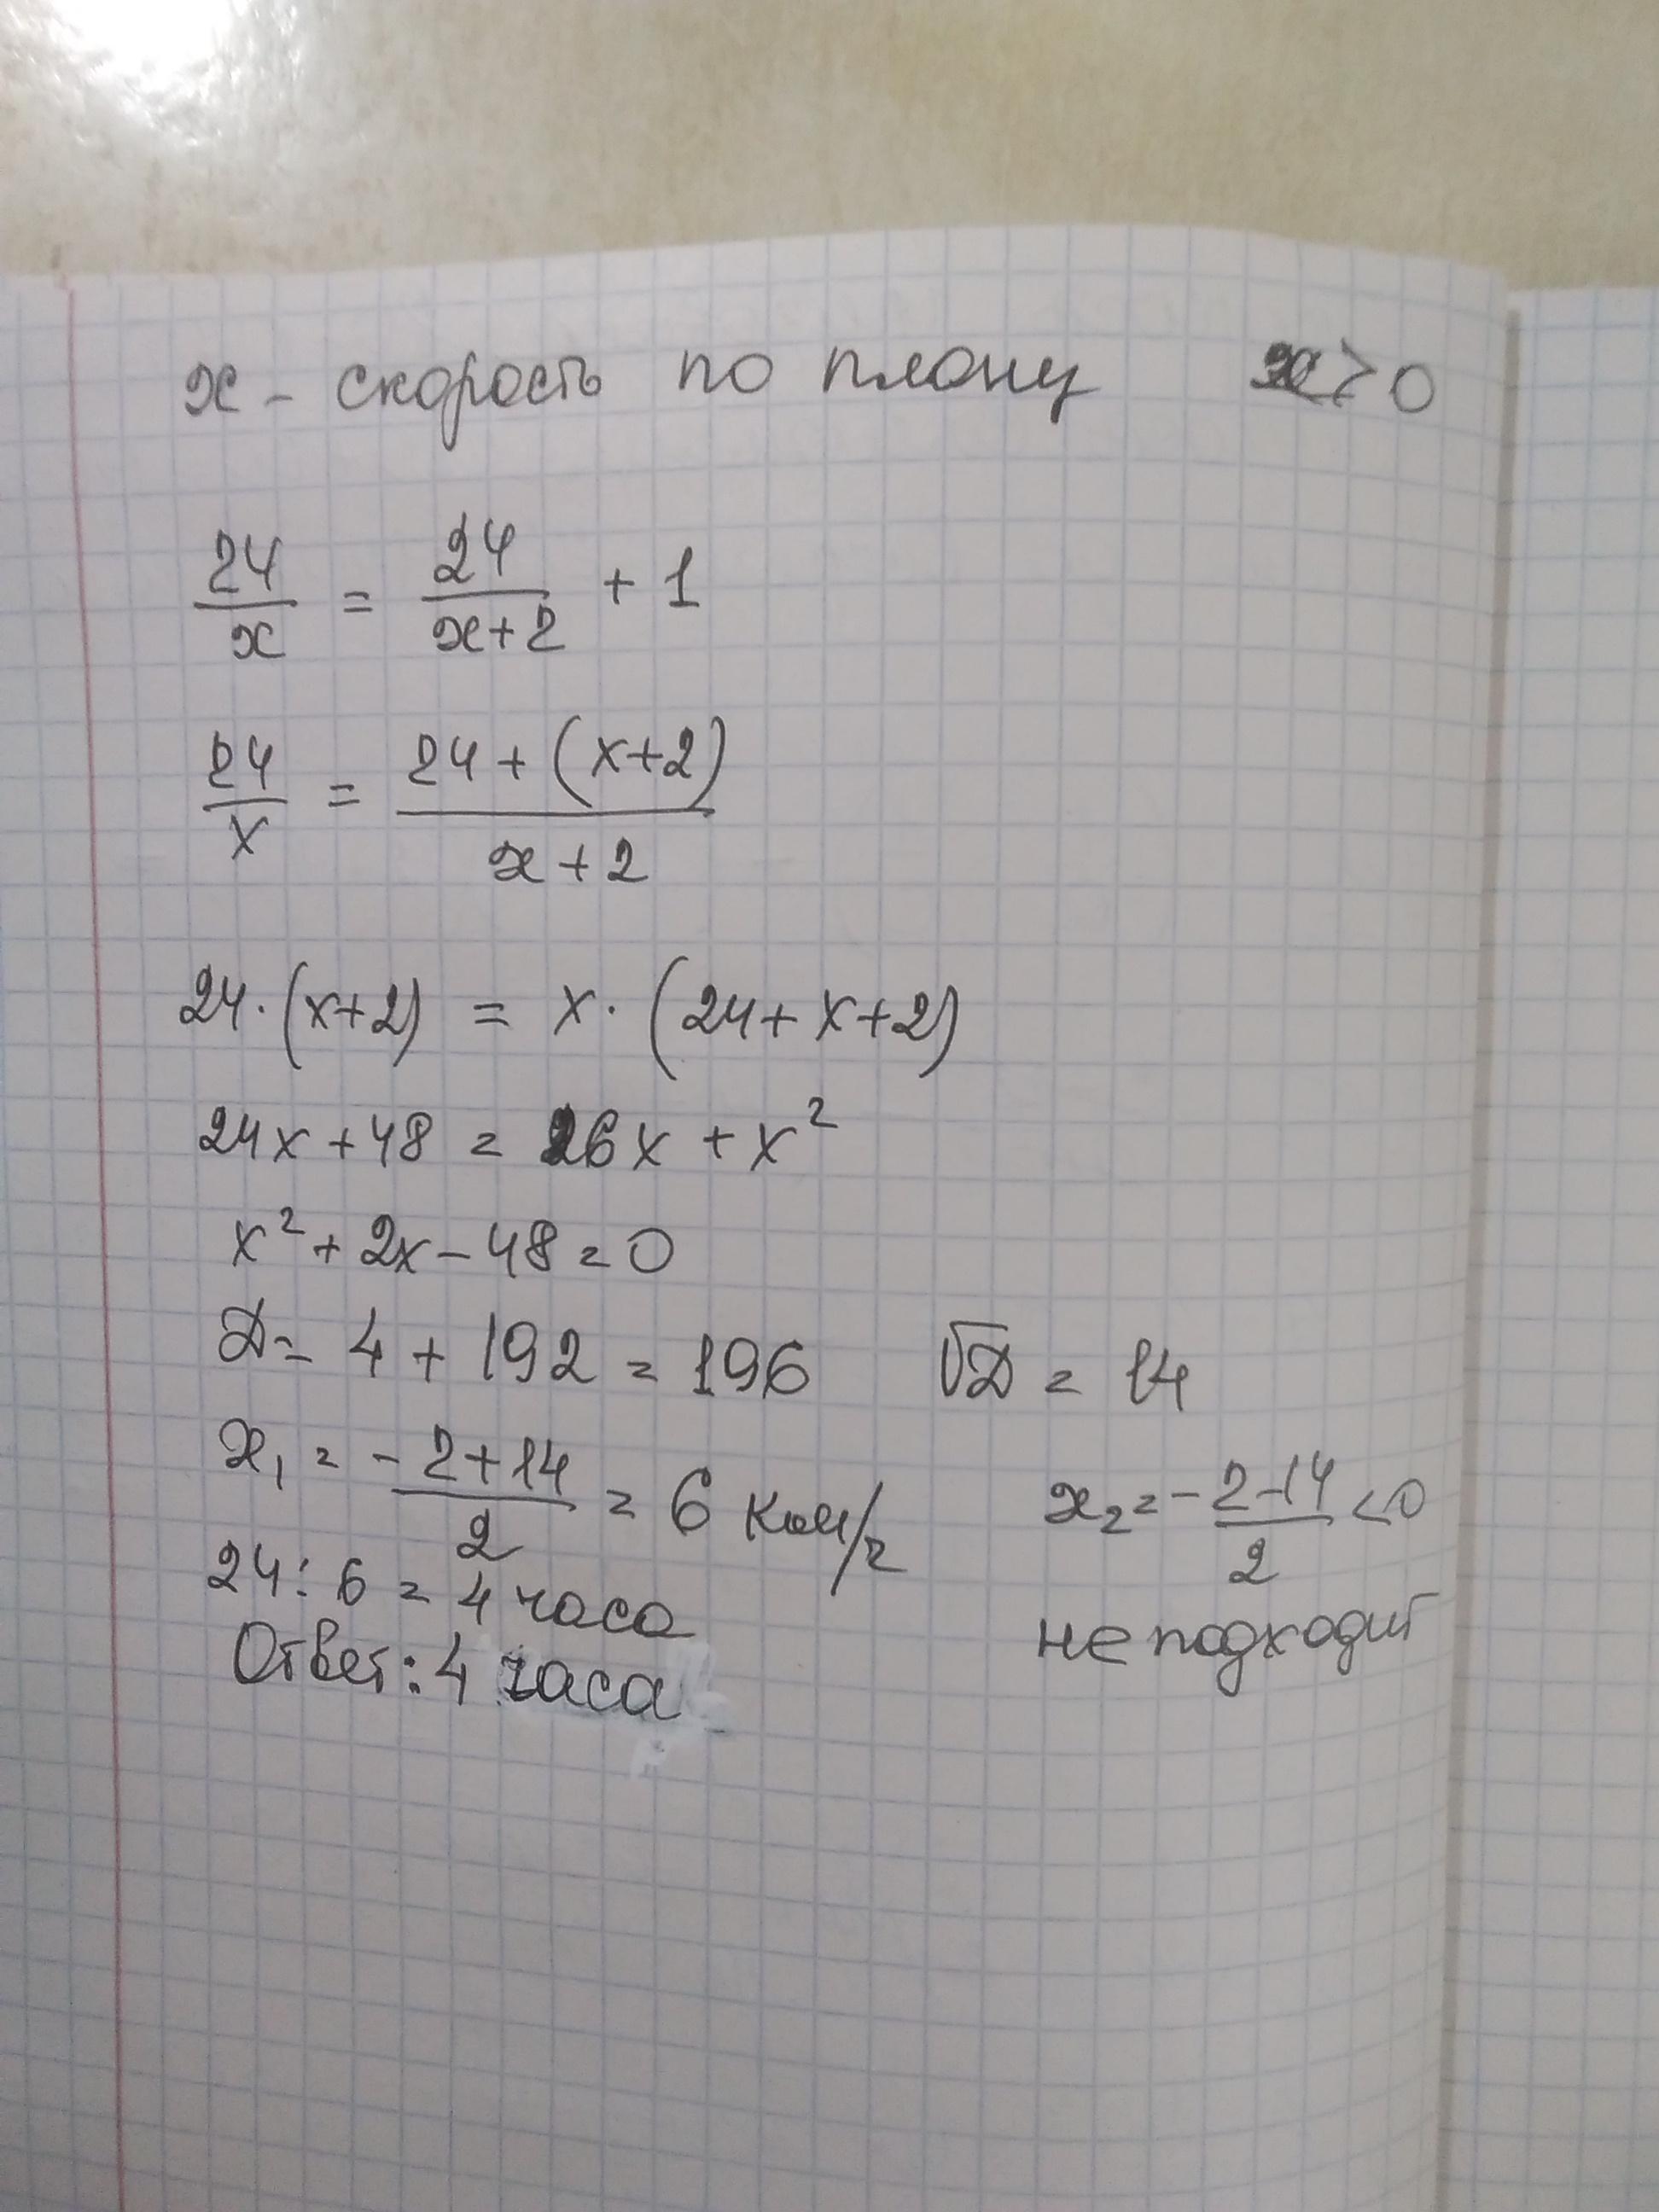 x - скорость по плану x > 0
24/x = 24/(x+2) + 1
24/x = (24 + (x+2))/(x+2)
24 · (x+2) = x · (24 + x + 2)
24x + 48 = 26x + x²
x² + 2x - 48 = 0
D = 4 + 192 = 196 √D = 14
x₁ = (-2+14)/2 = 6 км/ч x₂ = (-2-14)/2 < 0
24 : 6 = 4 часа не подходит
Ответ: 4 часа